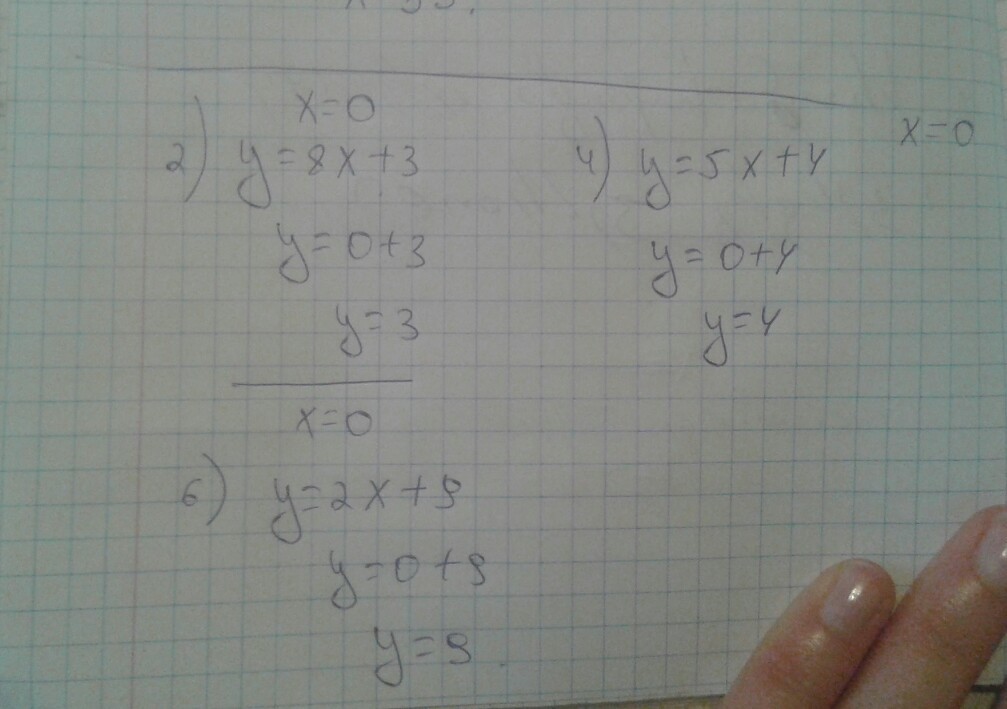 x=0
2) y=8x+3
y=0+3
y=3
x=0
4) y=5x+4
y=0+4
y=4
x=0
6) y=2x+9
y=0+9
y=9.